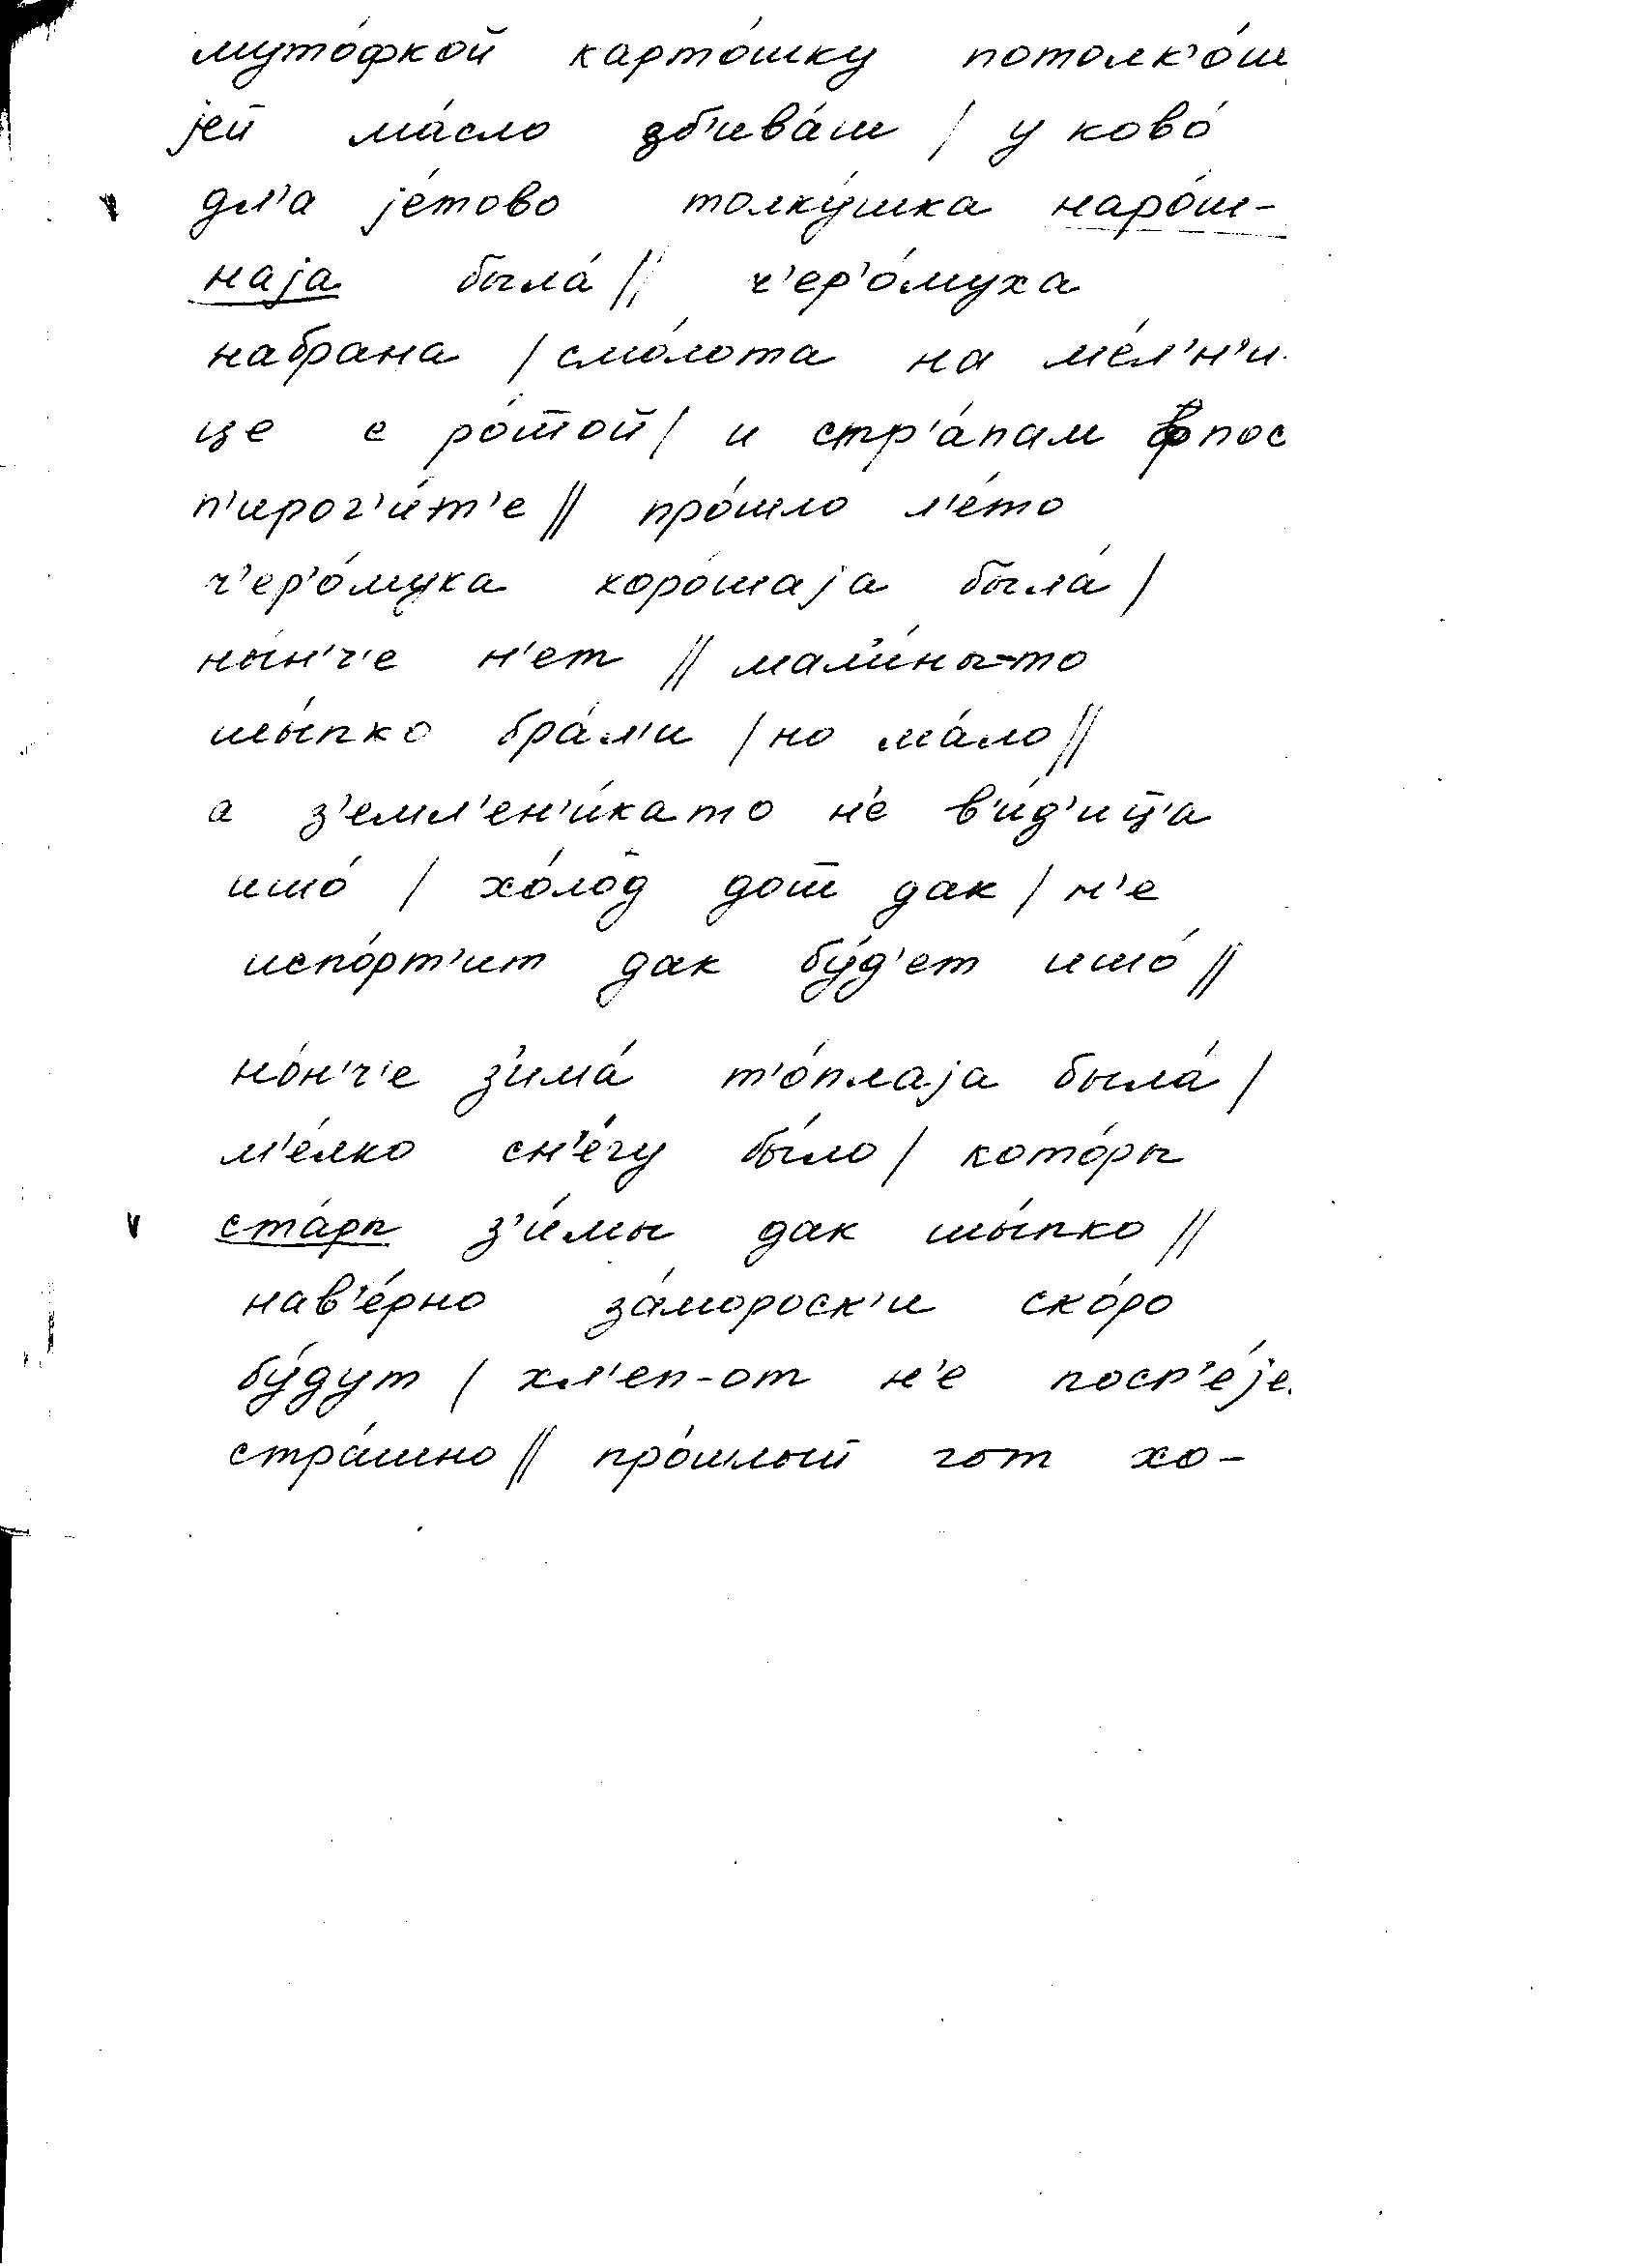 муто́фкой карто́шку потолк'о́ш
jей ма́сло зб'ива́ш / у ково́
дл'а jе́тово толку́шка наро́ш-
наjа была́ // ч'ер'о́муха
набрана / смо́лота на ме́л'н'и
це с ро́той / и стр'а́пам фпос
п'ирог'и́т'е // про́шло л'е́то
ч'ер'о́муха хоро́шаjа была́ /
ны́н'ч'е н'ет // мал'и́ны-то
шы́пко бра́л'и / но ма́ло //
а з'емл'ен'и́като н'е в'и́д'ица
ишо́ / хо́лод дак / н'е
испо́рт'ит дак бу́д'ет ишо́ //
но́н'ч'е з'има́ т'о́плаjа была́ /
м'е́лко сн'е́гу бы́ло / кото́ры
ста́ры з'и́мы дак шы́пко //
нав'е́рно за́мороск'и ско́ро
бу́дут / хл'еп-от н'е посп'е́jе
стра́шно // про́шлый гот хо-